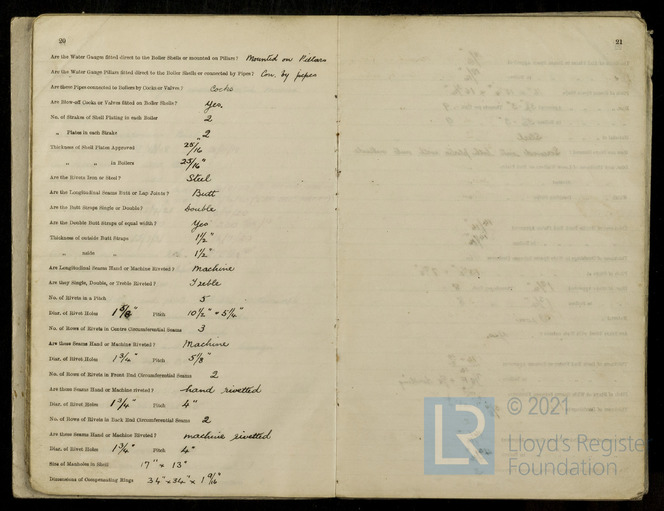 20
Are the Water Gauges fitted direct to the Boiler Shells or mounted on Pillars? Mounted on Pillars
Are the Water Gauge Pillars fitted direct to the Boiler Shells or connected by Pipes? Con. by pipes
Are these Pipes connected to Boilers by Cocks or Valves? Cocks
Are Blow-off Cocks or Valves fitted on Boiler Shells? Yes.
No. of Strakes of Shell Plating in each Boiler 2
„ Plates in each Strake 2
Thickness of Shell Plates Approved 25/16"
„ „ in Boilers 25/16"
Are the Rivets Iron or Steel? Steel
Are the Longitudinal Seams Butt or Lap Joints? Butt
Are the Butt Straps Single or Double? Double
Are the Double Butt Straps of equal width? Yes
Thickness of outside Butt Straps 1 1/2"
„ inside „ 1 1/2"
Are Longitudinal Seams Hand or Machine Riveted? Machine
Are they Single, Double, or Treble Riveted? Treble
No. of Rivets in a Pitch 5
Diar. of Rivet Holes 1 5/8" Pitch 10 1/2" × 5 1/4"
No. of Rows of Rivets in Centre Circumferential Seams 3
Are these Seams Hand or Machine Riveted? Machine
Diar. of Rivet Holes 1 3/4" Pitch 5 1/8"
No. of Rows of Rivets in Front End Circumferential Seams 2
Are these Seams Hand or Machine riveted? hand rivetted
Diar. of Rivet Holes 1 3/4" Pitch 4"
No. of Rows of Rivets in Back End Circumferential Seams 2
Are these Seams Hand or Machine Riveted? machine rivetted
Diar. of Rivet Holes 1 3/4" Pitch 4"
Size of Manholes in Shell 17" × 13"
Dimensions of Compensating Rings 34" × 34" × 1 9/16"
21
LR © 2021
Lloyd's Register
Foundation